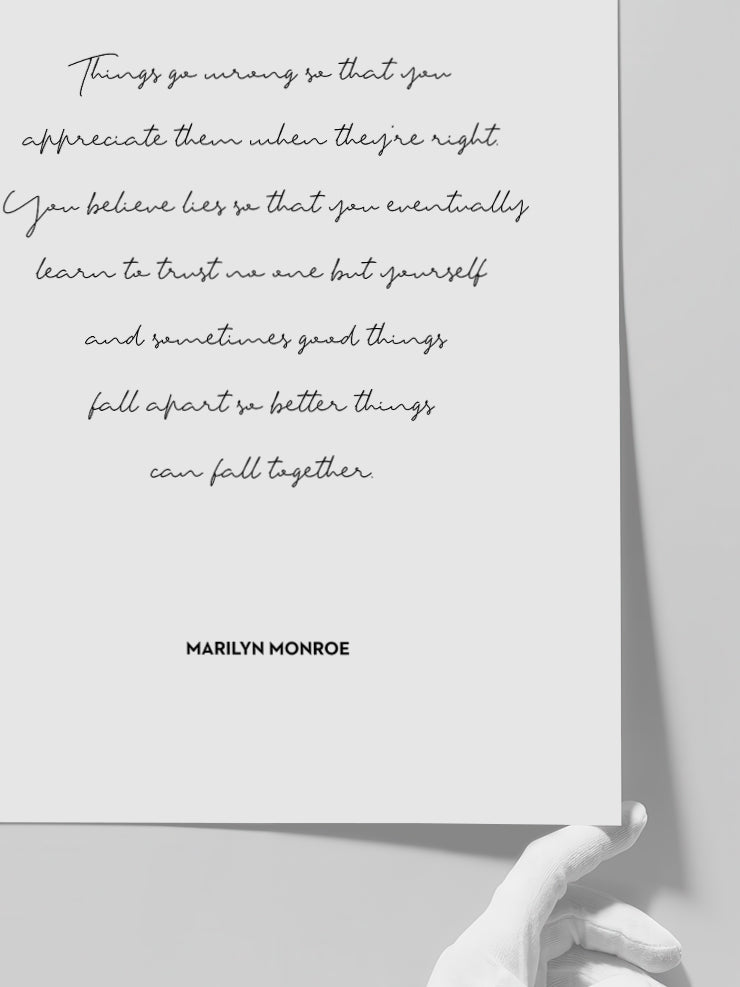 Things go wrong so that you
appreciate them when they're right.
You believe lies so that you eventually
learn to trust no one but yourself
and sometimes good things
fall apart so better things
can fall together.
MARILYN MONROE